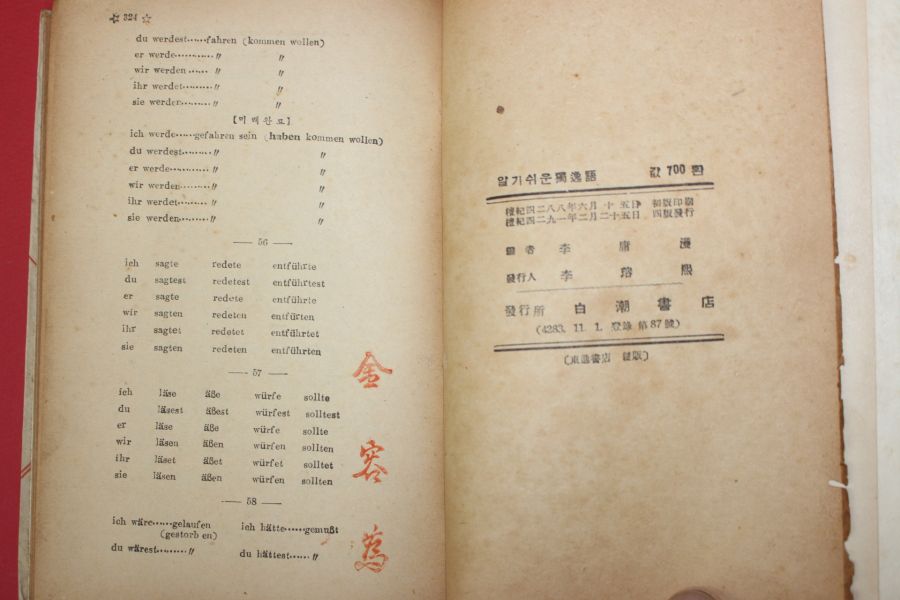 ☆ 324 ☆
du werdest……fahren (kommen wollen)
er werde…………〃 〃
wir werden ……〃 〃
ihr werdet………〃 〃
sie werden………〃 〃
[미래완료]
ich werde……gefahren sein (haben kommen wollen)
du werdest……〃 〃
er werde…………〃 〃
wir werden………〃 〃
ihr werdet………〃 〃
sie werden………〃 〃
— 56 —
ich sagte redete entführte
du sagtest redetest entführtest
er sagte redete entführte
wir sagten redeten entfürten
ihr sagtet redetet entführtet
sie sagten redeten entführten
— 57 —
ich läse äße würfe sollte
du läsest äßest würfest solltest
er läse äße würfe sollte
wir läsen äßen würfen sollten
ihr läset äßet würfet solltet
sie läsen äßen würfen sollten
— 58 —
ich wäre……gelaufen ich hätte……gemußt
(gestorben)
du wärest………〃 du hättest……〃
金
容
알기쉬운獨逸語 값 700 환
檀紀四二八八年六月十五日 初版印刷
檀紀四二九一年二月二十五日 四版發行
著者 李庸
發行人 李瑢熙
發行所 白潮書店
(4283. 11. 1. 登錄 第87號)
(東進書店 製版)